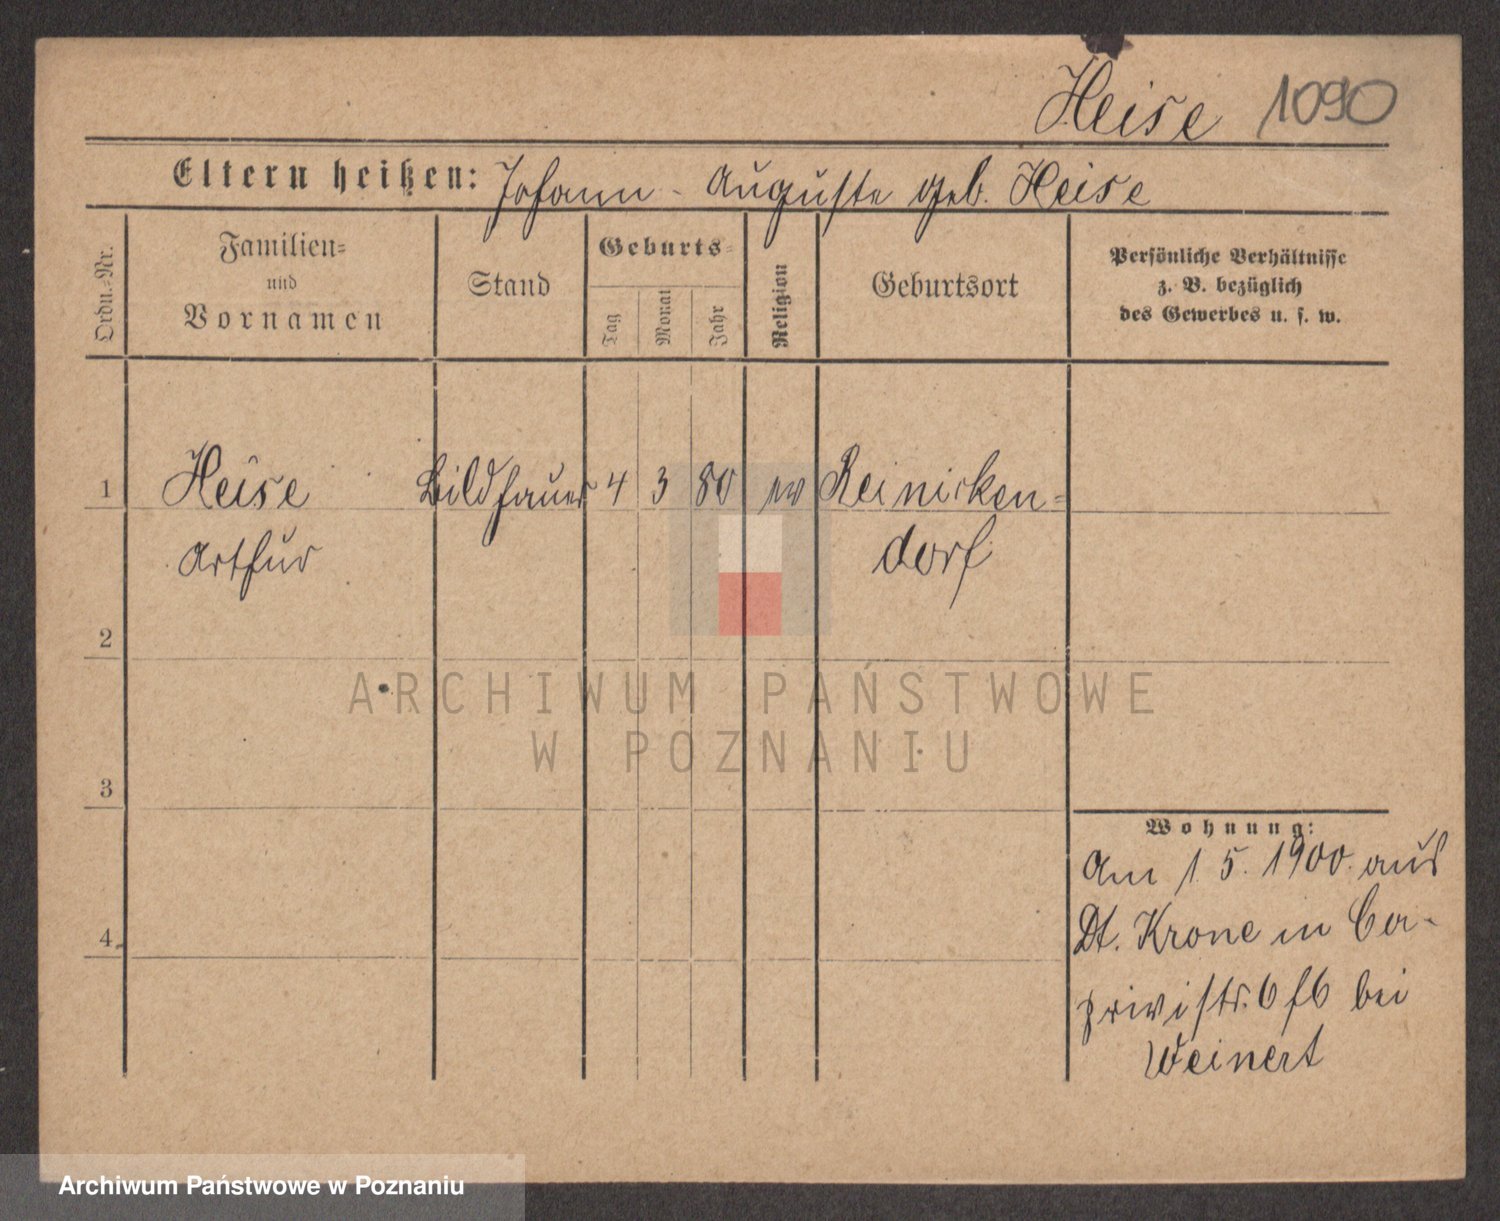 Heise 1090
Eltern heißen: Johann - Auguste geb. Heise
Ordn.-Nr.
Familien-
und
Vornamen
Stand
Geburts-
Tag
Monat
Jahr
Religion
Geburtsort
Persönliche Verhältnisse
z. B. bezüglich
des Gewerbes u. s. w.
1 Heise Bildhauer 4 3 80 ev Reinicken-
Arthur dorf
2
3
4
Wohnung:
Am 1. 5. 1900. aus
Dt. Krone in Ca-
privistr. 6 bei
Weinert
ARCHIWUM PAŃSTWOWE
W POZNANIU
Archiwum Państwowe w Poznaniu